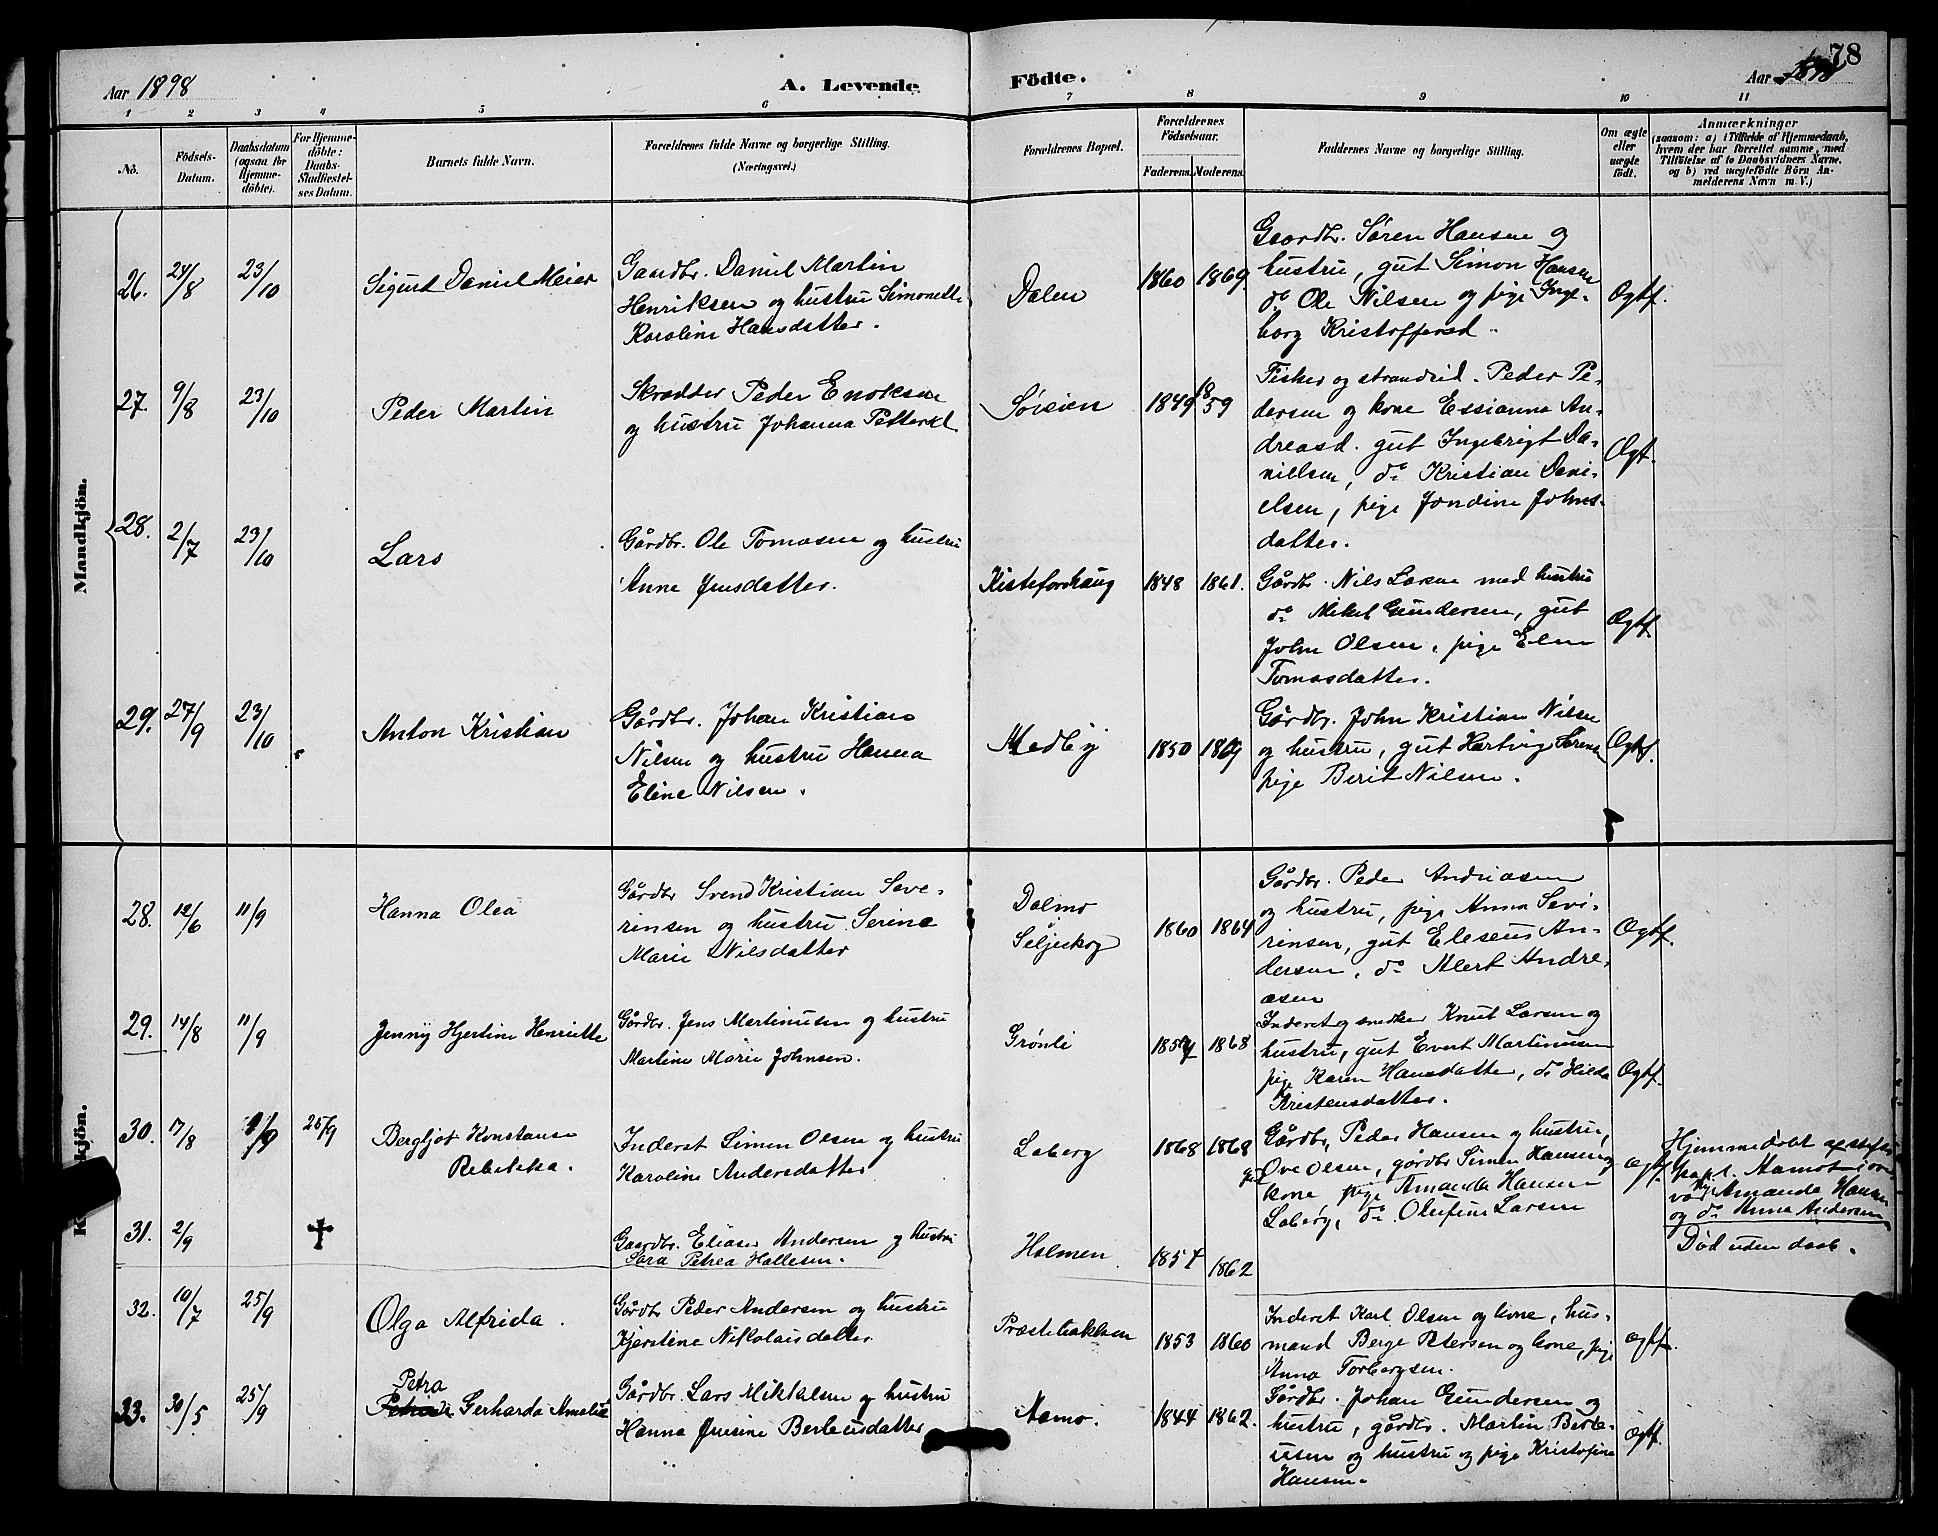 78
Aar 1898
A. Levende
Födte.
Aar 1898
1 2 3 4 5 6 7 8 9 10 11
No.
Födsels-
Datum.
Daabsdatum
(ogsaa for
Hjemme-
döbte).
For Hjemme-
döbte:
Daabs-
Stadfæstel-
ses Datum.
Barnets fulde Navn.
Forældrenes fulde Navne og borgerlige Stilling.
(Næringsvei.)
Forældrenes Bopæl.
Forældrenes
Födselsaar.
Faderens. Moderens.
Faddernes Navne og borgerlige Stilling.
Om ægte
eller
uægte
födt.
Anmærkninger
(saasom: a) i Tilfælde af Hjemmedaab,
hvem der har forrettet samme, med
Tilföielse af to Daabsvidners Navne.
og b) ved uægtefödte Börn An-
melderens Navn m. V.)
Mandkjön.
26.
24/8
23/10
Sigurd Daniel Meier
Gaardbr. Daniel Martin
Henriksen og hustru Simonette
Karoline Hansdatter.
Dalen
1860
1869
Gaardbr. Søren Hansen og
hustru, gut Simon Hansen
do Ole Nilsen og pige Inge-
borg Kristoffersd.
Ægtf.
27.
9/8
23/10
Peder Martin
Skrædder Peder Enoksen
og hustru Johanna Pettersd
Søreien
1849
1859
Fisker og strandsid. Peder Pe-
dersen og kone Essianna An-
dreasd. gut Ingebrigt Da-
nielsen, do Kristian Dani-
elsen, pige Jondine Johns-
datter.
Ægt.
28.
2/7
23/10
Lars
Gårdbr. Ole Tomasen og hustru
Anne Jensdatter.
Kisteforhaug
1848
1861.
Gårdb. Nils Larsen med hustru
do Mikel Gundersen, gut
John Olsen, pige Elen
Tomasdatter.
Ægtf
29.
27/9
23/10
Anton Kristian
Gårdbr. Johan Kristian
Nilsen og hustru Hanna
Eline Nilsen.
Medby
1850
1869
Gårdbr. John Kristian Nilsen
og hustru, gut Hartvig Sørensen
pige Berit Nilsen.
Ægtf.
28.
12/6
11/9
Hanna Olea
Gårdbr Svend Kristian Seve-
rinsen og hustru Serine
Marie Nilsdatter
Dalmo
Seljeskog
1860
1864
Gårdbr. Peder Andreasen
og hustru, pige Anna Sevi-
rinsen, gut Eleseus An-
dersen, do Alert Andre-
asen
Ægtf.
29.
14/8
11/9
Jenny Hjertine Henriette
Gårdbr. Jens Martinusen og hustru
Martine Marie Johnsen.
Grønli
1868
Inderst og snedker Knut Larsen og
hustru, gut Evert Martinusen
pige Karen Hansdatter, do Hilda
Kristensdatter.
Ægtf.
30.
17/8
25/9
Bergljot Konstanse
Rebekka.
Inderst Simon Olsen og hustru
Karoline Andersdatter
Laberg
1868
1868
Gårdbr. Peder Hansen og hustru,
gut Ove Olsen, gårdbr Simon Hansen og
kone pige Amanda Hansen
Laberg, do. Olufine Larsen
ægtf.
Hjemmedøbt af stifts
kapl. Aamot i over
vær pige Amanda Hansen
og do Anna Andersen
31.
2/9
✝
Gaardbr. Elias Andersen og hustru
Sara Petrea Hallesen.
Holmen
1857
1862
Død uden daab.
32.
10/7
25/9
Olga Alfrida.
Gårdbr Peder Andersen og hustru
Kjerstine Nikolaisdatter
Præstebakken
1853
1860
Inderst Karl Olsen og kone, hus-
mand Berge Petersen og kone, pige
Anna Torbergsen.
ægtf.
33.
30/5
25/9
Petra
Gerharda Amalie
Gårdbr. Lars Mikkelsen og hustru
Hanna Jensine Berteusdatter
Aamo.
1844
1862.
Gårdbr. Johan Gundersen og
hustru, gårdbr. Martin Berte-
usen og hustru og pige Kristofine
Hansen.
ægtf.